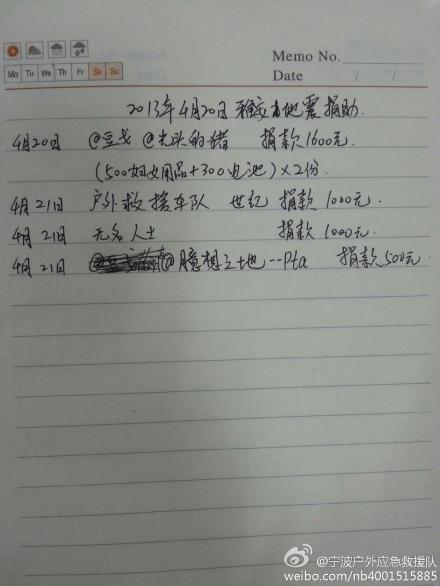 Memo No.
Mo Tu We Th Fr Sa Su
Date / /
2013年4月20日 雅安地震捐助.
4月20日 @豆戈 @光头的猪 捐款1600元.
(500妇女用品+300电池)×2份.
4月21日 户外救援车队 世纪 捐款 1000元.
4月21日 无名人士 捐款 1000元.
4月21日 @臆想之地--Pta 捐款500元.
@宁波户外应急救援队
weibo.com/nb4001515885